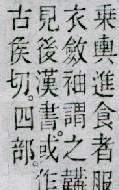 乘輿進食者服
衣斂袖謂之韝
見後漢書或作
古侯切。四部。